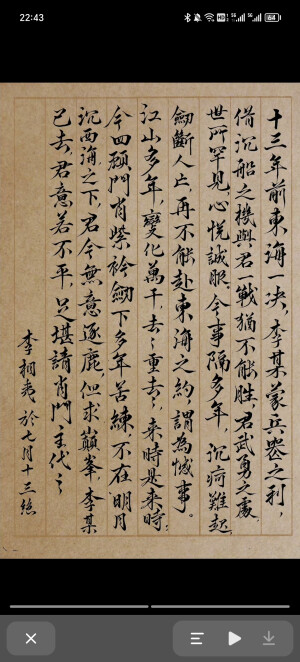 22:43
64
十三年前東海一決,李某蒙兵器之利,
借沉船之機與君一戰猶不能勝,君武勇之處,
世所罕見,心悅誠服,今事隔多年,沉疴難起,
劍斷人亡,再不能赴東海之約,謂為憾事。
江山多年,變化萬千,去々重去々,來時是來時。
今四顧門肖紫衿,劍下多年苦練,不在明月
沉西海之下,君今無意逐鹿,但求巔峯,李某
已去,君意若不平,足堪請肖門主代之
李相夷,於七月十三絕